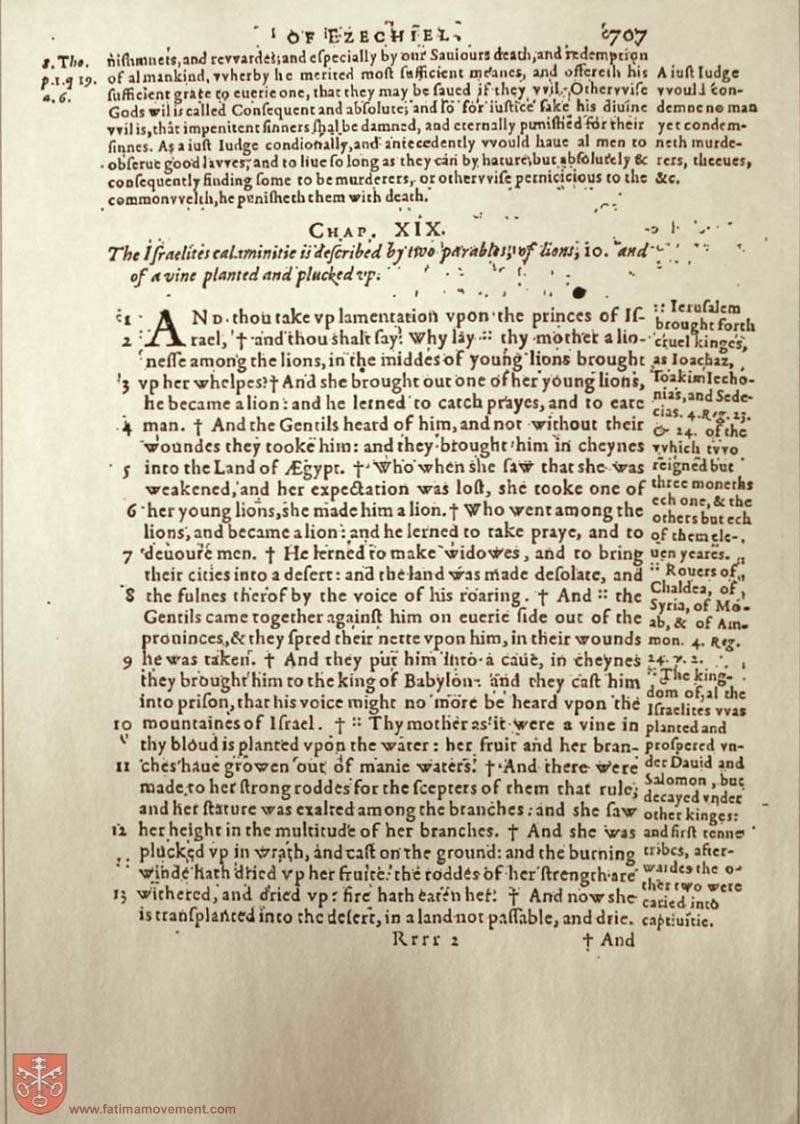 OF EZECHIEL. 707
s. Tho.
p. 1. q 19.
a. 6.
nishments, and revvardes; and especially by our Sauiours death, and redemption
of al mankind, vvherby he merited most sufficient meanes, and offereth his
sufficient grace to euerie one, that they may be saued if they vvil. Othervvise
Gods wil is called Consequent and absolute; and so for iustice sake his diuine
vvil is, that impenitent sinners shal be damned, and eternally punished for their
sinnes. As a iust Iudge condionally, and antecedently vvould haue al men to
obserue good lavves, and to liue so long as they can by nature, but absolutely &
consequently finding some to be murderers, or othervvise pernicicious to the
commonvvelth, he punisheth them with death.
A iust Iudge
vvould con-
demne no man
yet condem-
neth murde-
rers, theeues,
&c.
CHAP. XIX.
The Israelites calaminitie is described by two parables, of lions, 10. and
of a vine planted and plucked vp.
1 AND thou take vp lamentation vpon the princes of Is-
2 rael, † and thou shalt say: Why lay :: thy mother a lio-
nesse among the lions, in the middes of young lions brought
3 vp her whelpes? † And she brought out one of her young lions,
he became a lion: and he lerned to catch prayes, and to eate
4 man. † And the Gentils heard of him, and not without their
woundes they tooke him: and they brought him in cheynes
5 into the Land of Ægypt. † Who when she saw that she was
weakened, and her expectation was lost, she tooke one of
6 her young lions, she made him a lion. † Who went among the
lions, and became a lion: and he lerned to take praye, and to
7 deuoure men. † He lerned to make widowes, and to bring
their cities into a desert: and the land was made desolate, and
8 the fulnes therof by the voice of his roaring. † And :: the
Gentils came together against him on euerie side out of the
prouinces, & they spred their nette vpon him, in their wounds
9 he was taken. † And they put him into a caue, in cheynes
they brought him to the king of Babylon: and they cast him
into prison, that his voice might no more be heard vpon the
10 mountaines of Israel. † :: Thy mother as it were a vine in
thy bloud is planted vpon the water: her fruit and her bran-
11 ches haue growen out of manie waters. † And there were
made to her strong roddes for the scepters of them that rule,
and her stature was exalted among the branches: and she saw
12 her height in the multitude of her branches. † And she was
plucked vp in wrath, and cast on the ground: and the burning
winde hath dried vp her fruite: the roddes of her strength are
13 withered, and dried vp: fire hath eaten her. † And now she
is transplanted into the desert, in a land not passable, and drie.
:: Ierusalem
brought forth
cruel kinges,
as Ioachaz,
Ioakim Iecho-
nias, and Sede-
cias. 4. Reg. 23.
& 24. of the
vvhich tvvo
reigned but
three moneths
ech one, & the
others but ech
of them ele-
uen yeares.
:: Rouers of
Chaldea, of
Syria, of Mo-
ab, & of Am-
mon. 4. Reg.
24. v. 2.
:: The king-
dom of al the
Israelites vvas
planted and
prospered vn-
der Dauid and
Salomon, but
decayed vnder
other kinges:
and first tenne
tribes, after-
wardes the o-
ther two were
caried into
captiuitie.
Rrrr 2 † And
www.fatimamovement.com